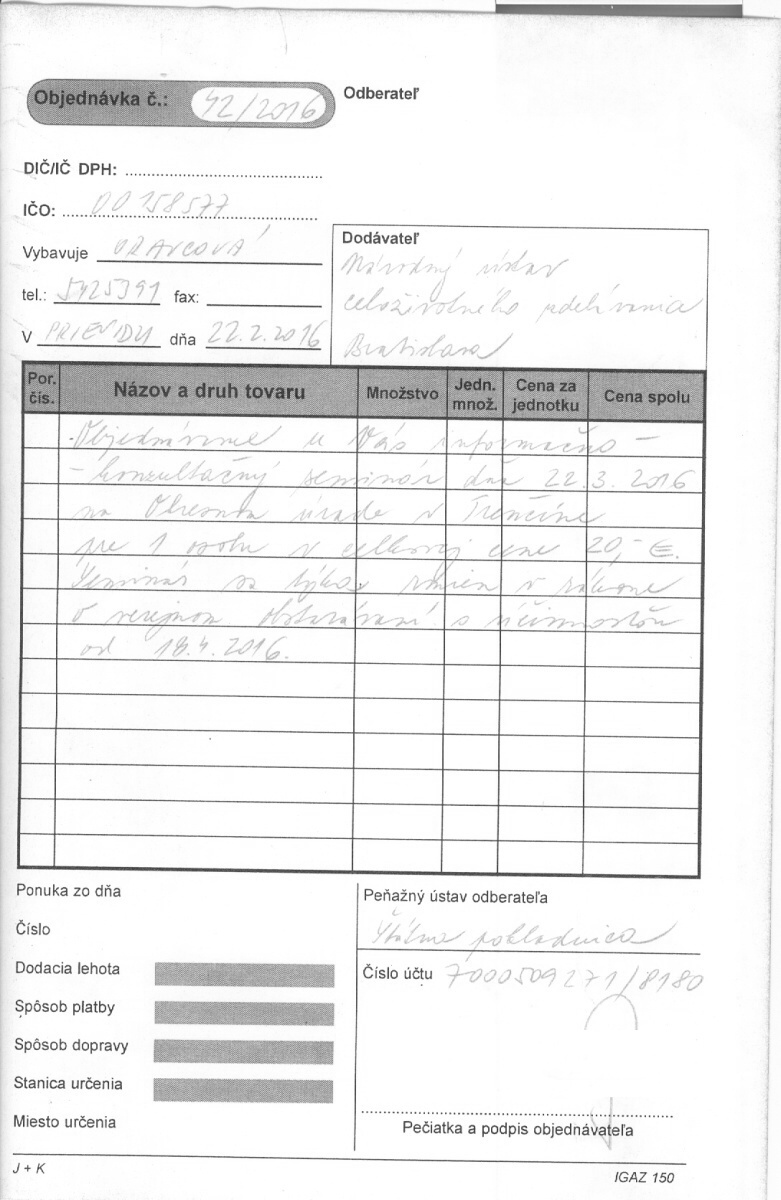 Objednávka č.: 42/2016
Odberateľ
DIČ/IČ DPH:
IČO: 00158577
Vybavuje ORAVCOVÁ
tel.: 5425391 fax:
V PRIEVIDZI dňa 22.2.2016
Dodávateľ
Národný ústav
celoživotného vzdelávania
Bratislava
Por. čís. Názov a druh tovaru Množstvo Jedn. množ. Cena za jednotku Cena spolu
Objednávame u Vás informačno -
- konzultačný seminár dňa 22.3.2016
na Okresnom úrade v Trenčíne
pre 1 osobu v celkovej cene 20,- €.
Seminár sa týka zmien v zákone
o verejnom obstarávaní s účinnosťou
od 18.4.2016.
Ponuka zo dňa
Číslo
Dodacia lehota
Spôsob platby
Spôsob dopravy
Stanica určenia
Miesto určenia
Peňažný ústav odberateľa
Štátna pokladnica
Číslo účtu 7000509271/8180
Pečiatka a podpis objednávateľa
J + K
IGAZ 150